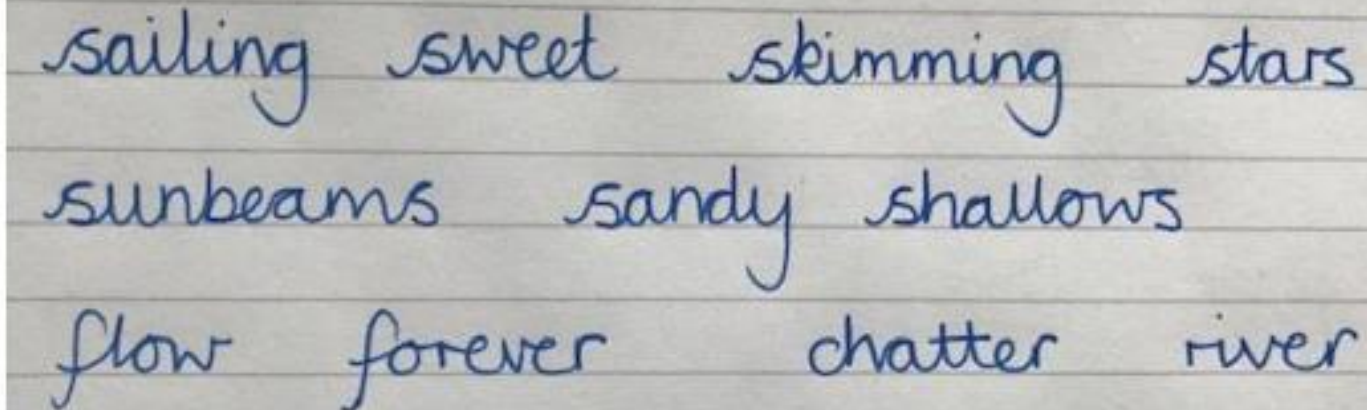 sailing sweet skimming stars
sunbeams sandy shallows
flow forever chatter river